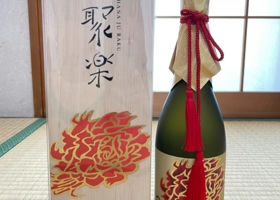 HANA JU RAKU
聚楽